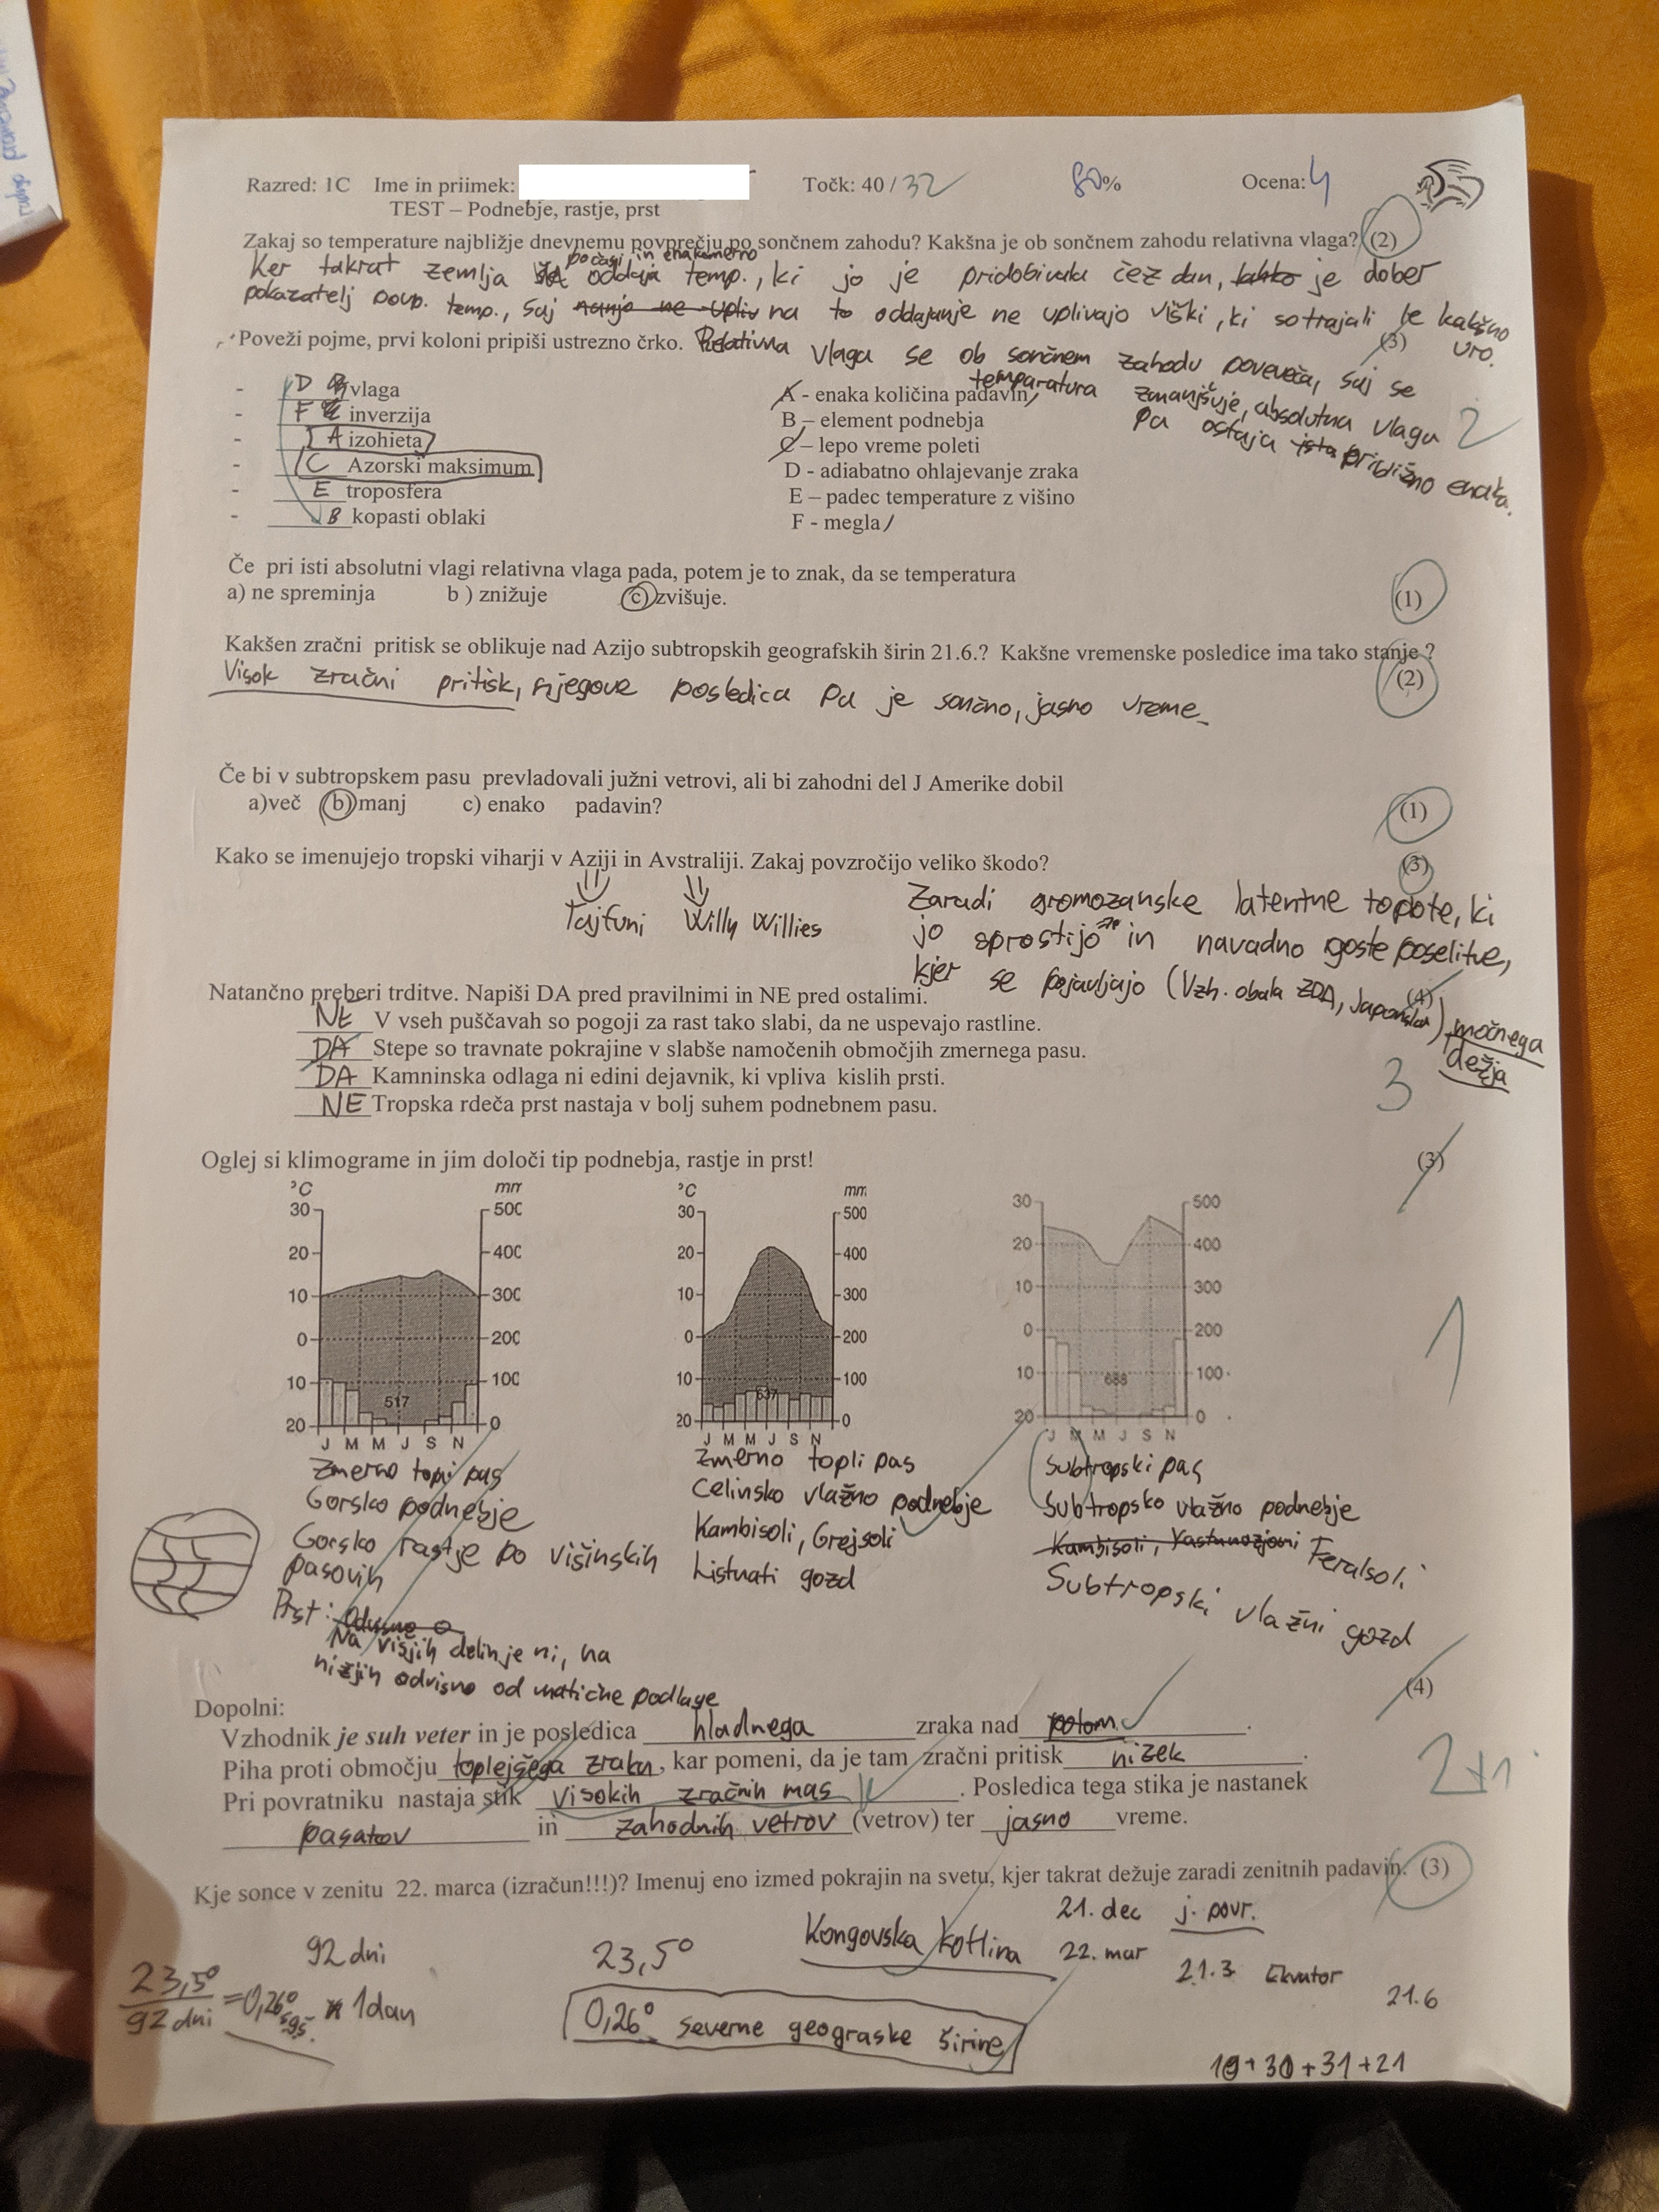 Razred: 1C Ime in priimek: Točk: 40 / 32 80% Ocena: 4
TEST – Podnebje, rastje, prst
Zakaj so temperature najbližje dnevnemu povprečju po sončnem zahodu? Kakšna je ob sončnem zahodu relativna vlaga? (2)
počasi, in enakomerno
Ker takrat zemlja oddaja temp., ki jo je pridobivala čez dan, lahko je dober
pokazatelj povp. temp., saj nanjo ne vpliv na to oddajanje ne vplivajo viški, ki so trajali le kakšno
uro.
Poveži pojme, prvi koloni pripiši ustrezno črko. (3)
Relativna vlaga se ob sončnem zahodu poveveča, saj se
temperatura zmanjšuje, absolutna vlaga
pa ostaja ista približno enaka.
2
- D vlaga
- F inverzija
- A izohieta
- C Azorski maksimum
- E troposfera
- B kopasti oblaki
A - enaka količina padavin
B – element podnebja
C – lepo vreme poleti
D - adiabatno ohlajevanje zraka
E – padec temperature z višino
F - megla
Če pri isti absolutni vlagi relativna vlaga pada, potem je to znak, da se temperatura
a) ne spreminja b ) znižuje c) zvišuje. (1)
Kakšen zračni pritisk se oblikuje nad Azijo subtropskih geografskih širin 21.6.? Kakšne vremenske posledice ima tako stanje ?
(2)
Visok zračni pritisk, njegova posledica pa je sončno, jasno vreme
Če bi v subtropskem pasu prevladovali južni vetrovi, ali bi zahodni del J Amerike dobil
a)več b) manj c) enako padavin? (1)
Kako se imenujejo tropski viharji v Aziji in Avstraliji. Zakaj povzročijo veliko škodo? (3)
Tajfuni Willy Willies
Zaradi gromozanske latentne toplote, ki
jo sprostijo in navadno goste poselitve,
kjer se pojavljajo (Vzh. obala ZDA, Japonska)
močnega
dežja
Natančno preberi trditve. Napiši DA pred pravilnimi in NE pred ostalimi. (4)
NE V vseh puščavah so pogoji za rast tako slabi, da ne uspevajo rastline.
DA Stepe so travnate pokrajine v slabše namočenih območjih zmernega pasu.
DA Kamninska odlaga ni edini dejavnik, ki vpliva kislih prsti.
NE Tropska rdeča prst nastaja v bolj suhem podnebnem pasu.
3
Oglej si klimograme in jim določi tip podnebja, rastje in prst! (3)
°C mm
30 500
20 400
10 300
0 200
10 100
20 0
517
J M M J S N
°C mm
30 500
20 400
10 300
0 200
10 100
20 0
637
J M M J S N
30 500
20 400
10 300
0 200
10 100
20 0
688
J M M J S N
1
Zmerno topli pas
Gorsko podnebje
Gorsko rastje po višinskih
pasovih
Prst: Odvisno o
Na višjih delih je ni, na
nižjih odvisno od matične podlage
Zmerno topli pas
Celinsko vlažno podnebje
Kambisoli, Grejsoli
Listnati gozd
Subtropski pas
Subtropsko vlažno podnebje
Kambisoli, Feralsoli
Subtropski vlažni gozd
Dopolni: (4)
Vzhodnik je suh veter in je posledica hladnega zraka nad polom.
Piha proti območju toplejšega zraka, kar pomeni, da je tam zračni pritisk nizek.
Pri povratniku nastaja stik visokih zračnih mas. Posledica tega stika je nastanek
pasatov in zahodnih vetrov (vetrov) ter jasno vreme.
2+1
Kje sonce v zenitu 22. marca (izračun!!!)? Imenuj eno izmed pokrajin na svetu, kjer takrat dežuje zaradi zenitnih padavin. (3)
92 dni
23,5°
Kongovska kotlina
21. dec j. povr.
22. mar
21.3 Ekvator
21.6
23,5°
92 dni
=0,26° 1 dan
š.g.š.
0,26° severne geograske širine
19+30+31+21